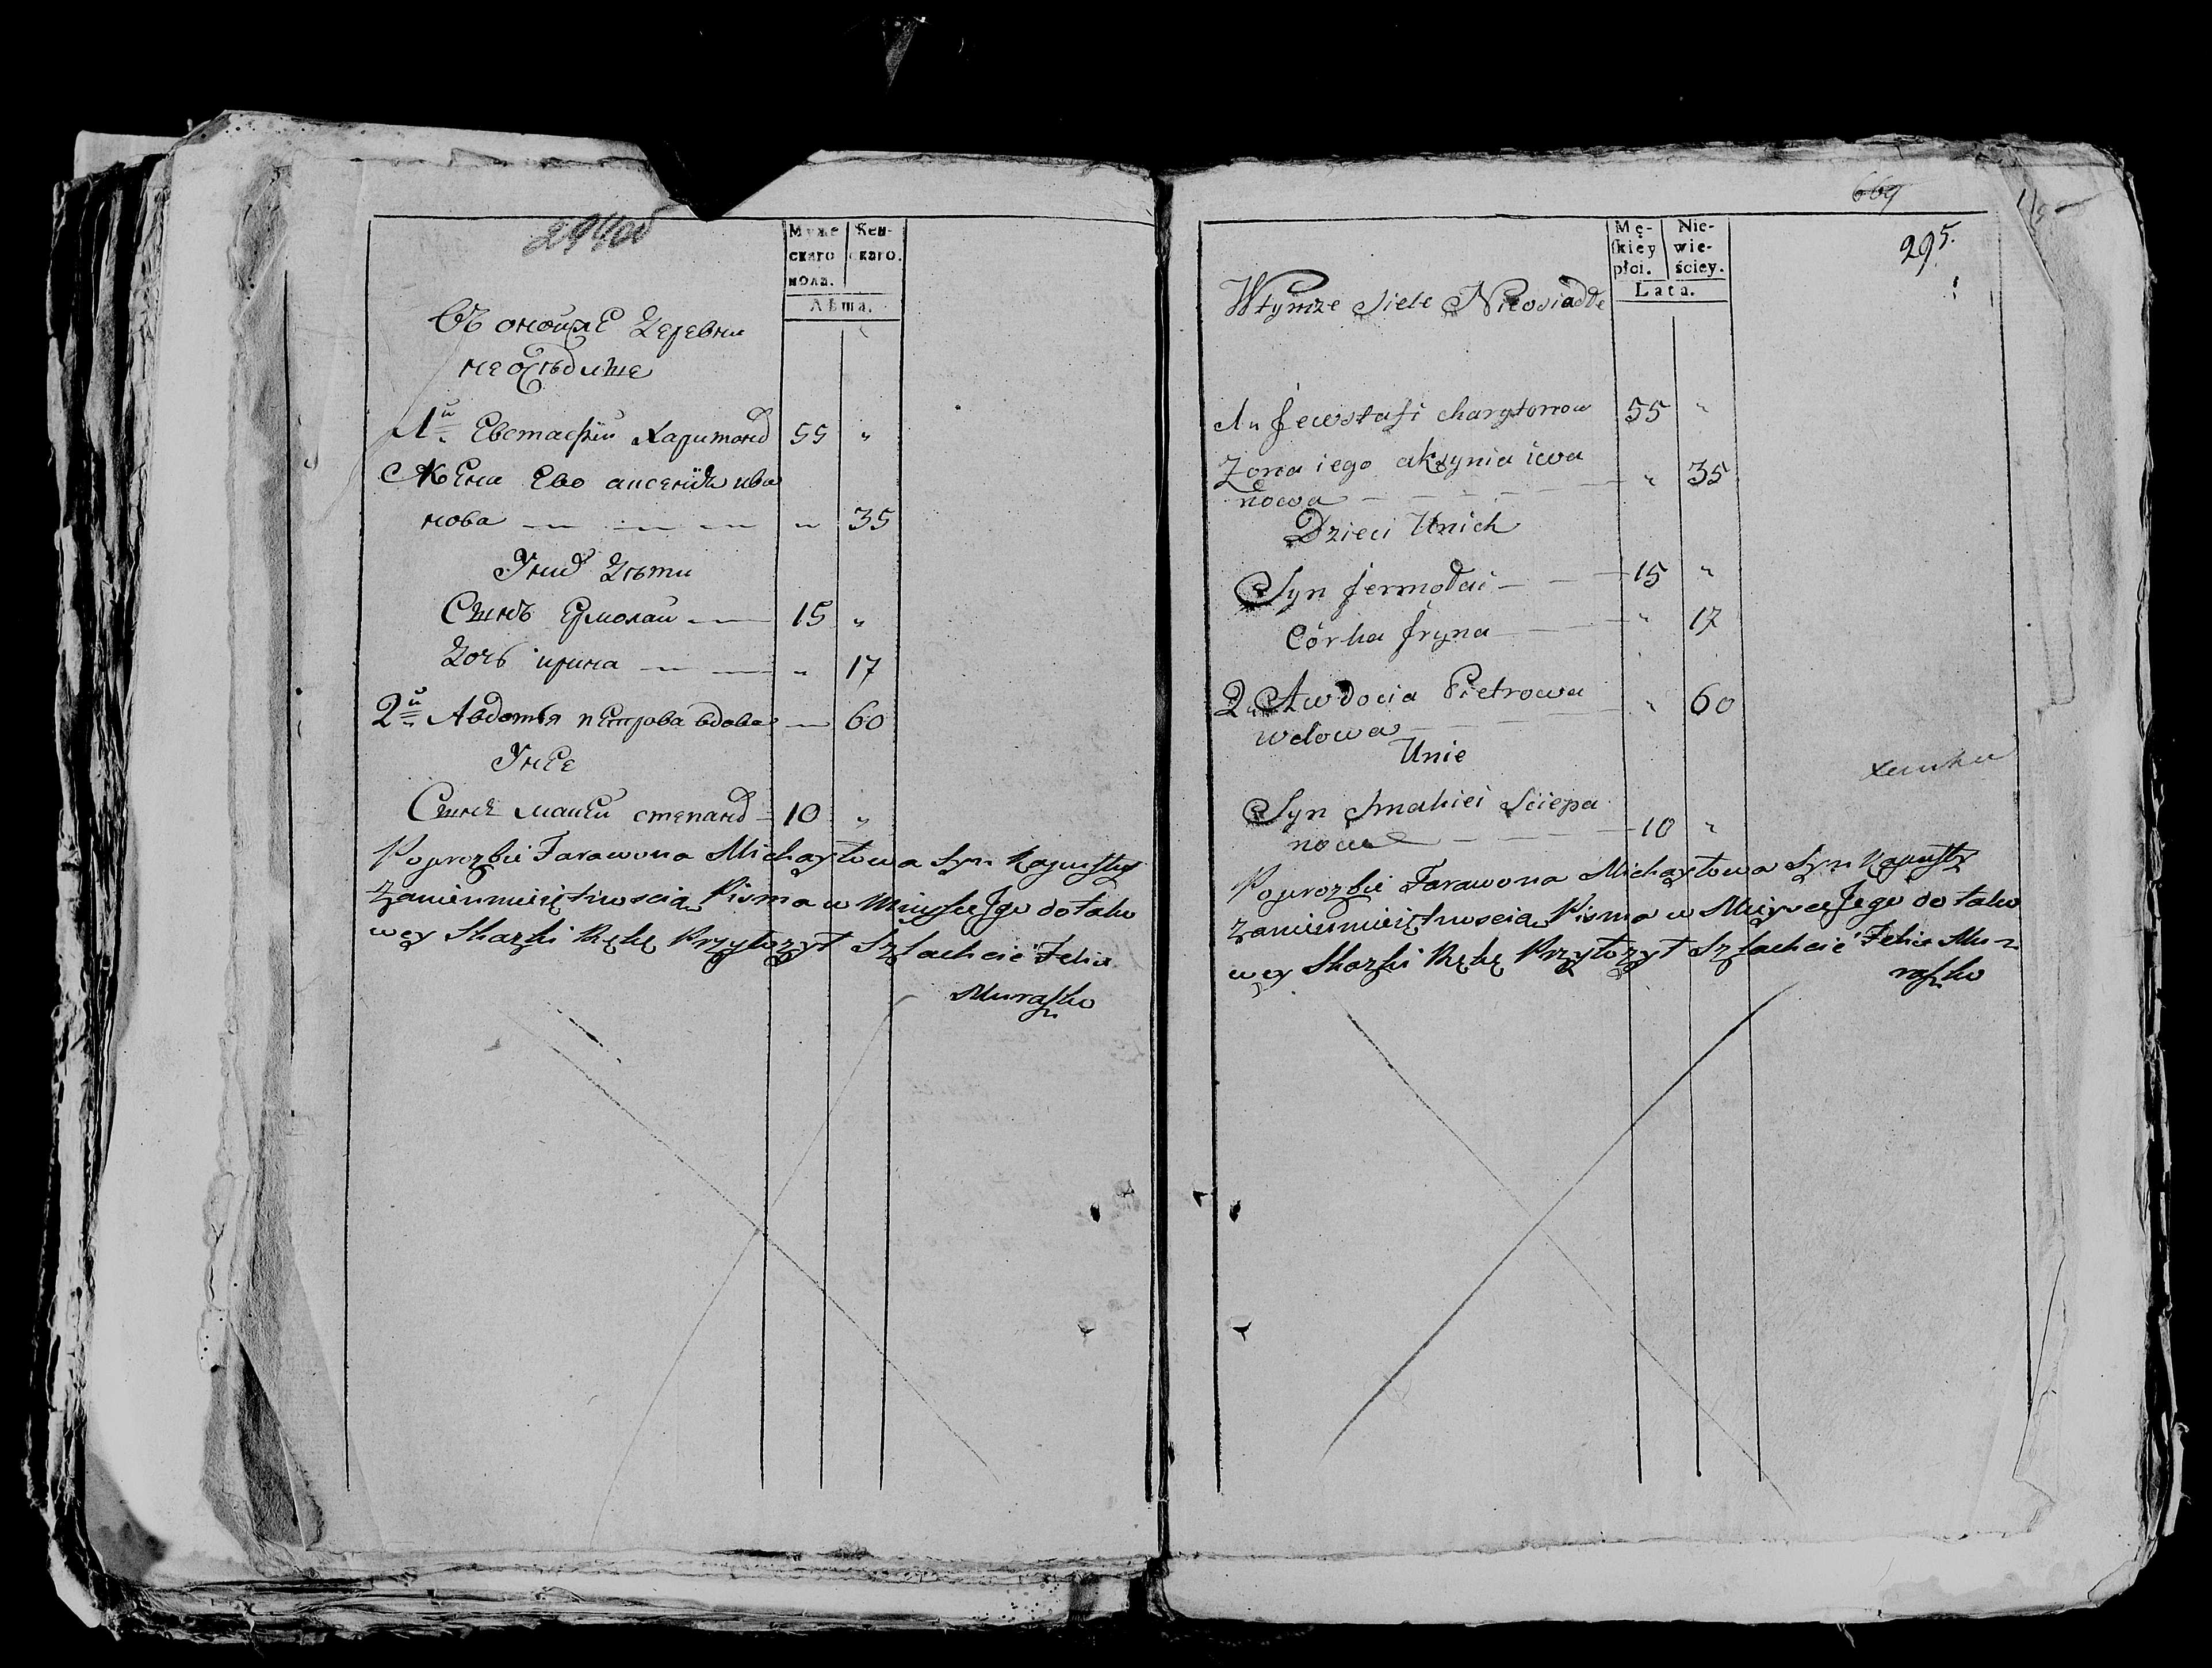 294об
Муже
скаго
пола.
Жен-
скаго.
Лѣта.
Въ оной же Деревни
неоседлые
1й Евстафiй Харитонов 55 "
Жена Ево аксенiя ива
нова " 35
У них дѣти
Сынъ Ермолай 15 "
Дочь ирина " 17
2й Авдотья петрова вдова 60
У нее
Сынъ макей степанов 10 "
Po prozbie Farawona Michayłowa Syn Kapusty
za nieumieiętnoscią Pisma w Mieysce Jego do tako
wey Skazki Rękę Przyłożył Szlachcic Felix
Muraszko
669
295.
Mę-
skiey
płci.
Nie-
wie-
ściey.
Lata.
W tymże siele Nieosiadłe
1 Jewstafi charytonow 55 "
Żona iego aksynia iwa
nowa " 35
Dzieci U nich
Syn Jermołai 15 "
Córka Jryna " 17
2 Awdocia Pietrowa " 60
wdowa
U nie
Syn makiei Sciepa
now 10 "
Po prozbie Farawona Michayłowa Syn Kapusty
za nieumieiętnoscią Pisma w Mieysce Jego do tako
wey Skazki Rękę Przyłożył Szlachcic Felix Mu-
raszko